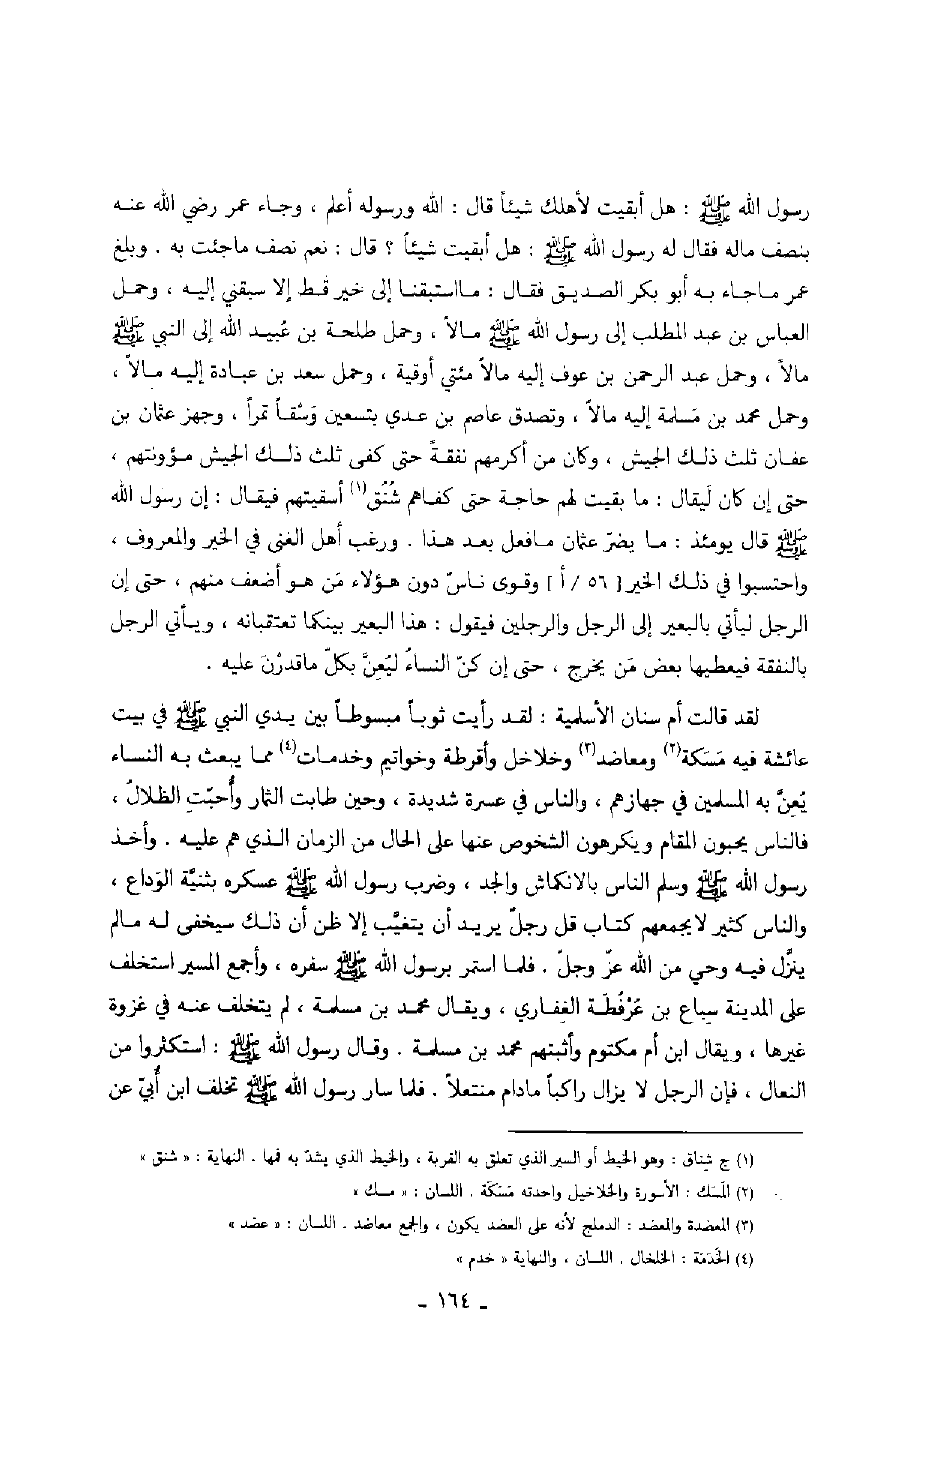 رسول الله ﷺ : هل أبقيت لأهلك شيئاً قال : الله ورسوله أعلم ، وجاء عمر رضي الله عنه
بنصف ماله فقال له رسول الله ﷺ : هل أبقيت شيئاً ؟ قال : نعم نصف ماجئت به . وبلغ
عمر ماجاء به أبو بكر الصديق فقال : مااستبقنا إلى خير قط إلا سبقني إليه ، وحمل
العباس بن عبد المطلب إلى رسول الله ﷺ مالاً ، وحمل طلحة بن عُبيد الله إلى النبي ﷺ
مالاً ، وحمل عبد الرحمن بن عوف إليه مالاً مئتي أوقية ، وحمل سعد بن عبادة إليه مالاً ،
وحمل محمد بن مَسلمة إليه مالاً ، وتصدق عاصم بن عدي بتسعين وَسْقاً تمراً ، وجهز عثمان بن
عفان ثلث ذلك الجيش ، وكان من أكرمهم نفقةً حتى كفى ثلث ذلك الجيش مؤونتهم ،
حتى إن كان لَيقال : ما بقيت لهم حاجة حتى كفاهم شُنُق(١) أسقيتهم فيقال : إن رسول الله
ﷺ قال يومئذ : ما يضرّ عثمان مافعل بعد هذا . ورغب أهل الغنى في الخير والمعروف ،
واحتسبوا في ذلك الخير [ ٥٦ / أ ] وقوى ناسٌ دون هؤلاء مَن هو أضعف منهم ، حتى إن
الرجل ليأتي بالبعير إلى الرجل والرجلين فيقول : هذا البعير بينكما تعتقبانه ، ويأتي الرجل
بالنفقة فيعطيها بعض مَن يخرج ، حتى إن كنّ النساءُ ليُعِنَّ بكلّ ماقدرْنَ عليه .
لقد قالت أم سنان الأسلمية : لقد رأيت ثوباً مبسوطاً بين يدي النبي ﷺ في بيت
عائشة فيه مَسَكة(٢) ومعاضد(٣) وخلاخل وأقرطة وخواتيم وخدمات(٤) مما يبعث به النساء
يُعِنَّ به المسلمين في جهازهم ، والناس في عسرة شديدة ، وحين طابت الثمار وأُحبّتِ الظلالُ ،
فالناس يحبون المقام ويكرهون الشخوص عنها على الحال من الزمان الذي هم عليه . وأخذ
رسول الله ﷺ وسلم الناس بالانكماش والجد ، وضرب رسول الله ﷺ عسكره بثنيَّة الوَداع ،
والناس كثير لايجمعهم كتاب قل رجلٌ يريد أن يتغيَّب إلا ظن أن ذلك سيخفى له مالم
ينزَّل فيه وحي من الله عزّ وجلّ . فلما استمر برسول الله ﷺ سفره ، وأجمع المسير استخلف
على المدينة سِباع بن عُرْفُطَة الغفاري ، ويقال محمد بن مسلمة ، لم يتخلف عنه في غزوة
غيرها ، ويقال ابن أم مكتوم وأثبتهم محمد بن مسلمة . وقال رسول الله ﷺ : استكثروا من
النعال ، فإن الرجل لا يزال راكباً مادام منتعلاً . فلما سار رسول الله ﷺ تخلف ابن أُبيّ عن
(١) ج شِناق : وهو الخيط أو السير الذي تعلق به القربة ، والخيط الذي يشدّ به فمها . النهاية : « شنق »
(٢) المَسَك : الأسورة والخلاخيل واحدته مَسَكَة . اللسان : « مسك »
(٣) المعضدة والمعضد : الدملج لأنه على العضد يكون ، والجمع معاضد . اللسان : « عضد »
(٤) الخَدَمَة : الخلخال . اللسان ، والنهاية « خدم »
- ١٦٤ -